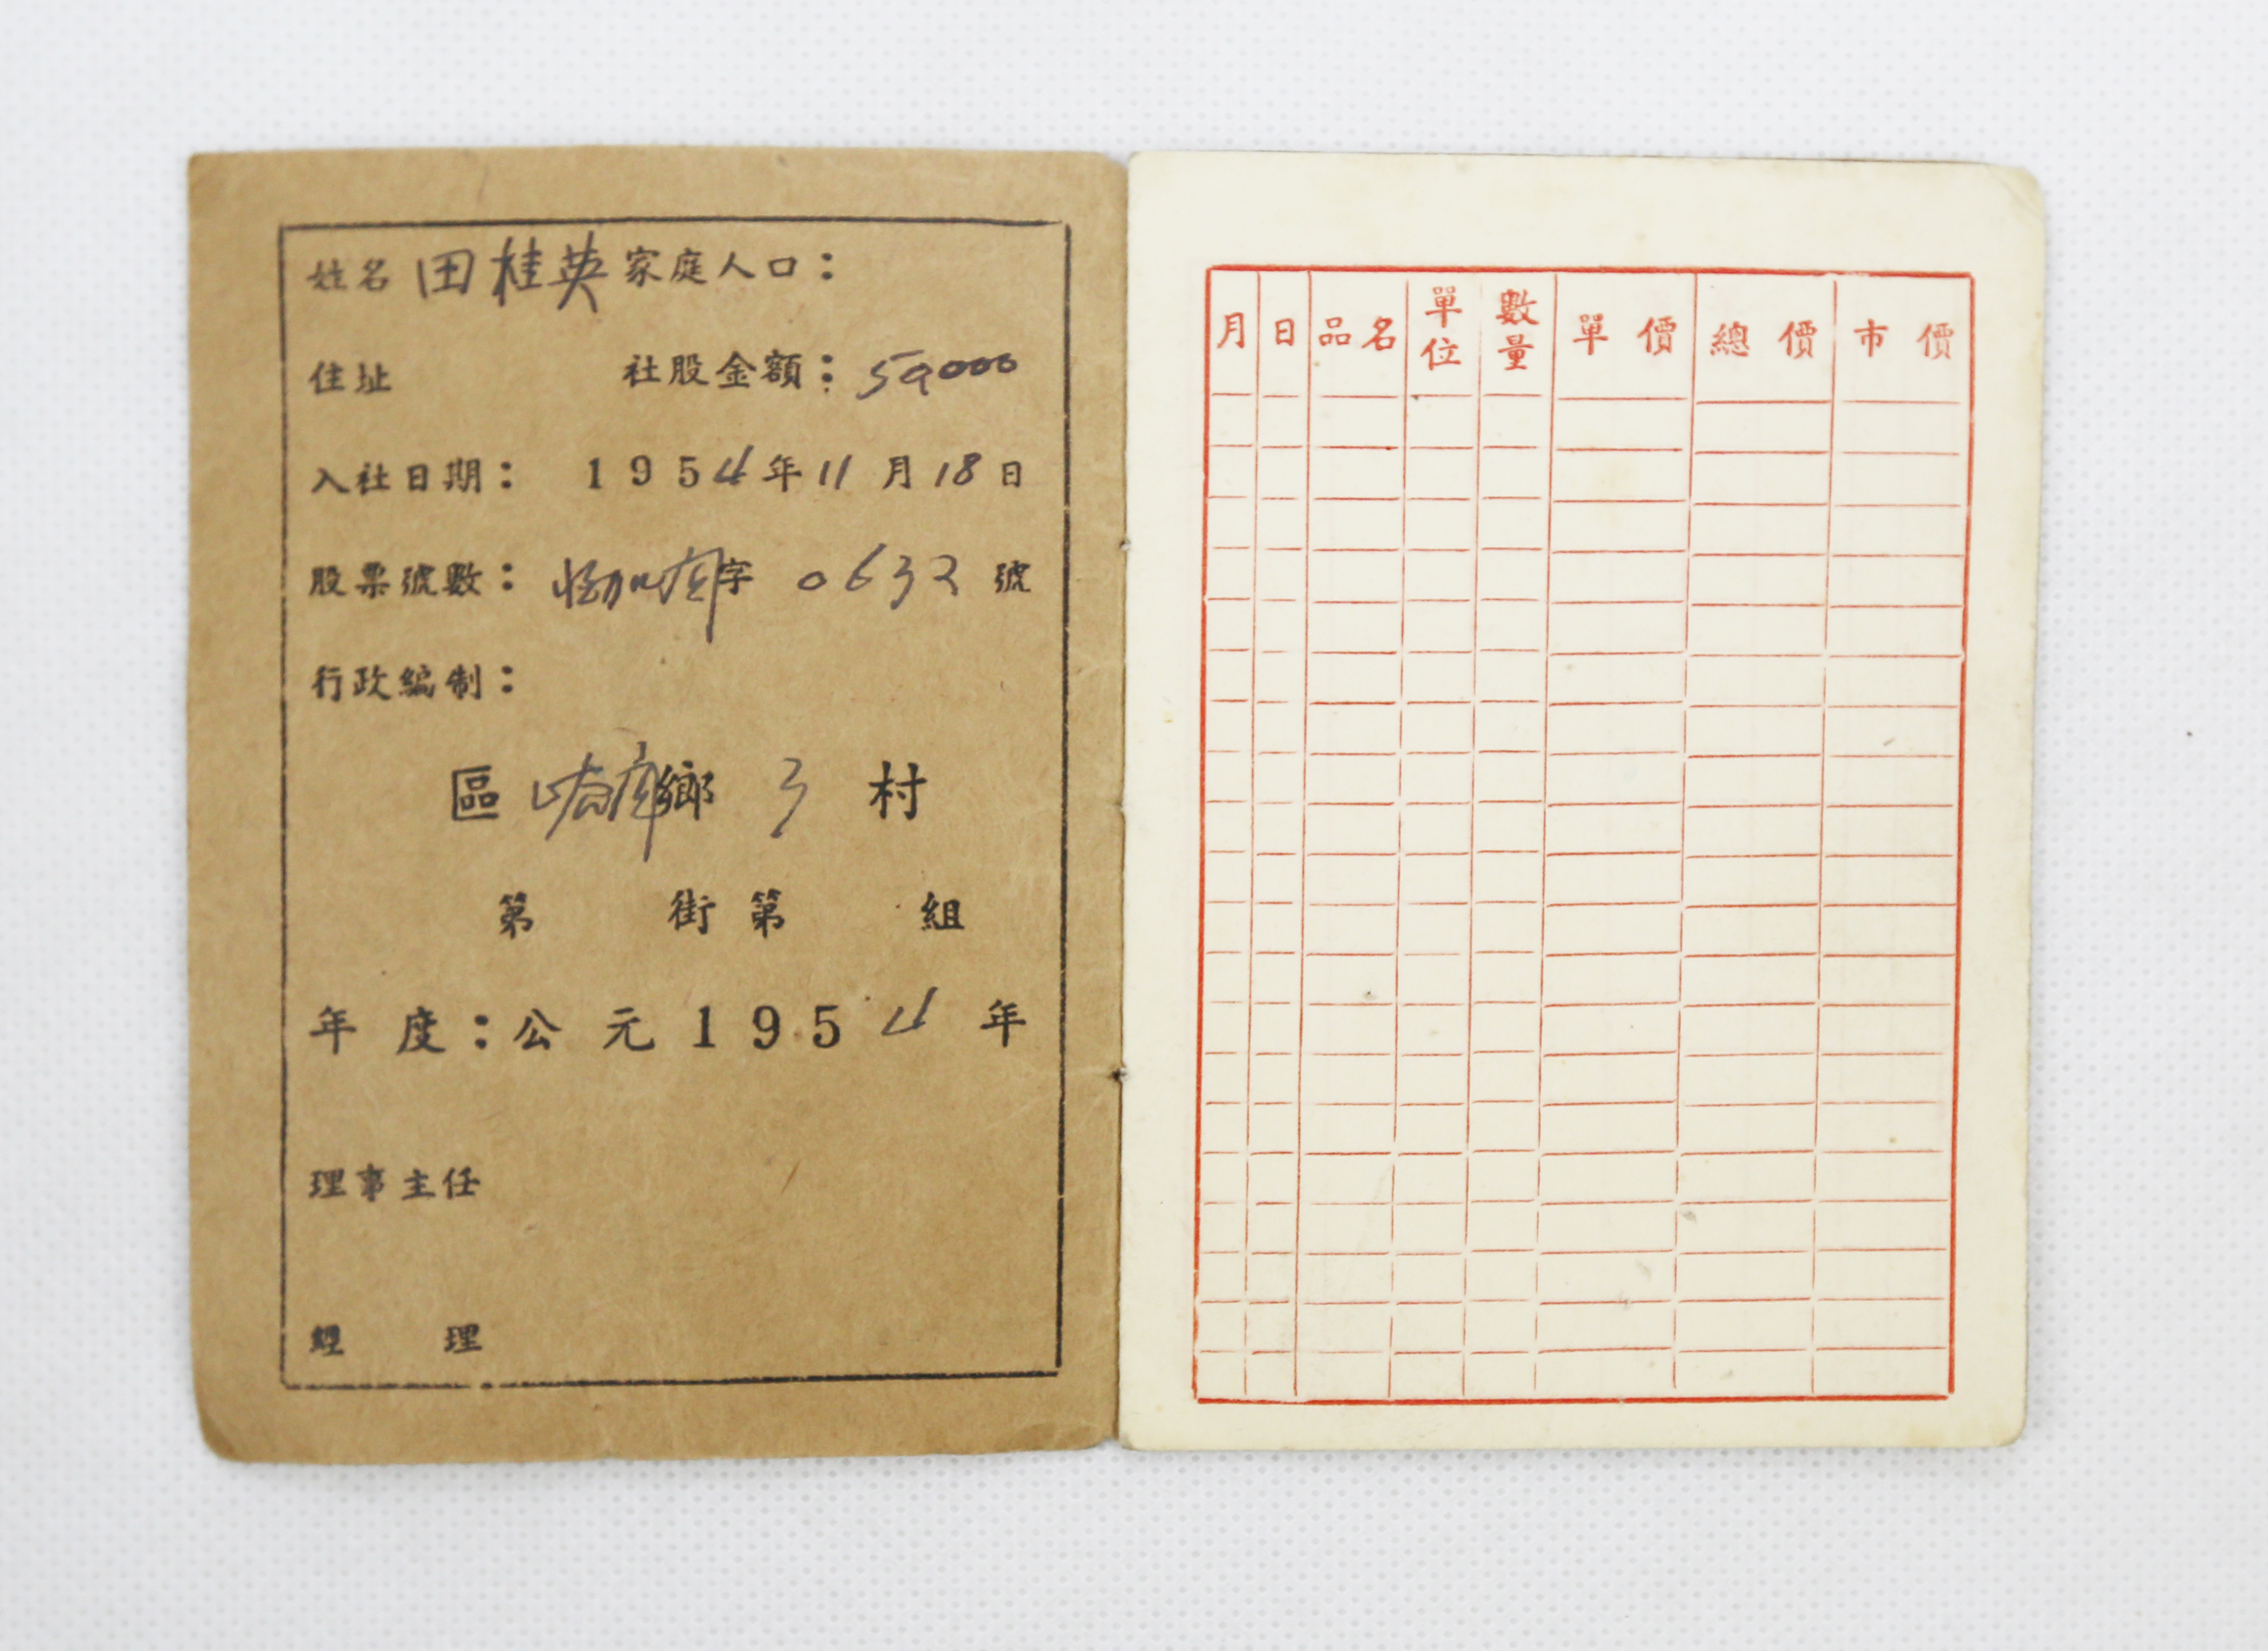 姓名 田桂英 家庭人口：
住址 社股金額： 50000
入社日期： 1954年11月18日
股票號數： 字 0632 號
行政編制：
區 鄉 3 村
第 街 第 組
年度：公元1954年
理事主任
經理
月 日 品名 單位 數量 單價 總價 市價